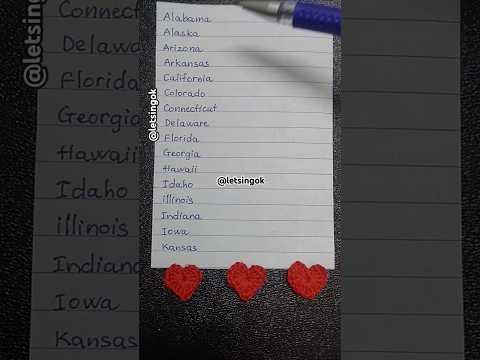 Alabama
Alaska
Arizona
Arkansas
California
Colorado
Connecticut
Delaware
Florida
Georgia
Hawaii
Idaho
illinois
Indiana
Iowa
Kansas
@letsingok
@letsingok
@letsingok
Connec
Delaware
Florida
Georgia
Hawaii
Idaho
illinois
Indiana
Iowa
Kansas